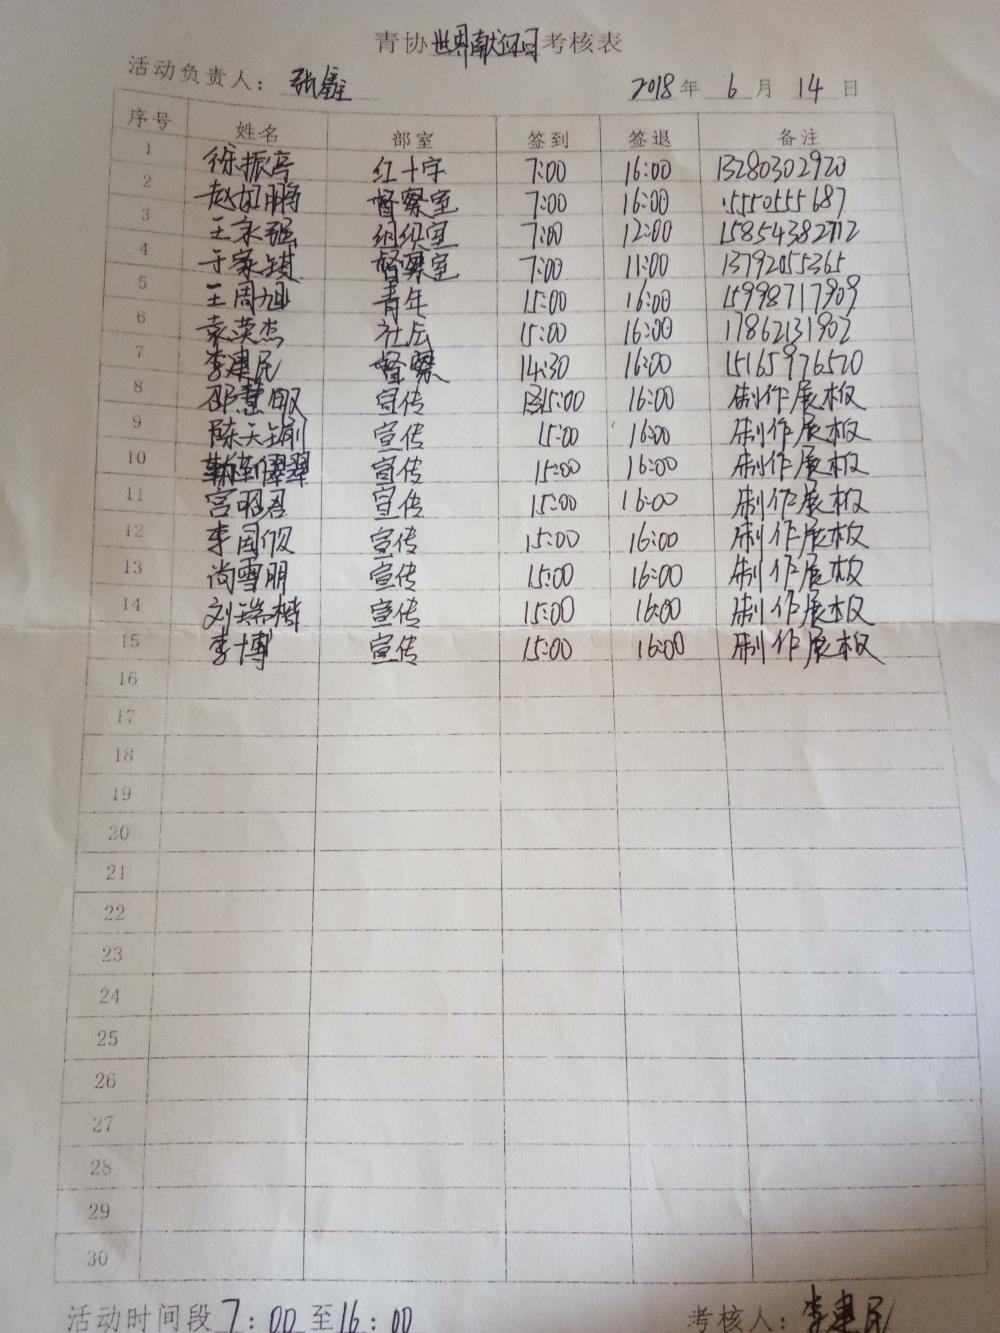 青协世界献血日考核表
活动负责人：张鑫 2018年 6月 14日
序号 姓名 部室 签到 签退 备注
1 徐振亭 红十字 7:00 16:00 13280302920
2 赵 鹏 督察室 7:00 16:00 15550555687
3 王家强 组织室 7:00 12:00 15854382712
4 于家镇 督察室 7:00 11:00 13792055365
5 王周旭 青年 15:00 16:00 15998717909
6 袁英杰 社会 15:00 16:00 17862131902
7 李建民 督察 14:30 16:00 15165976520
8 邵慧敏 宣传 15:00 16:00 制作展板
9 陈天 宣传 15:00 16:00 制作展板
10 翠翠 宣传 15:00 16:00 制作展板
11 宫昭君 宣传 15:00 16:00 制作展板
12 李国 宣传 15:00 16:00 制作展板
13 尚雪明 宣传 15:00 16:00 制作展板
14 刘瑞 宣传 15:00 16:00 制作展板
15 李博 宣传 15:00 16:00 制作展板
16
17
18
19
20
21
22
23
24
25
26
27
28
29
30
活动时间段 7：00至16：00 考核人：李建民